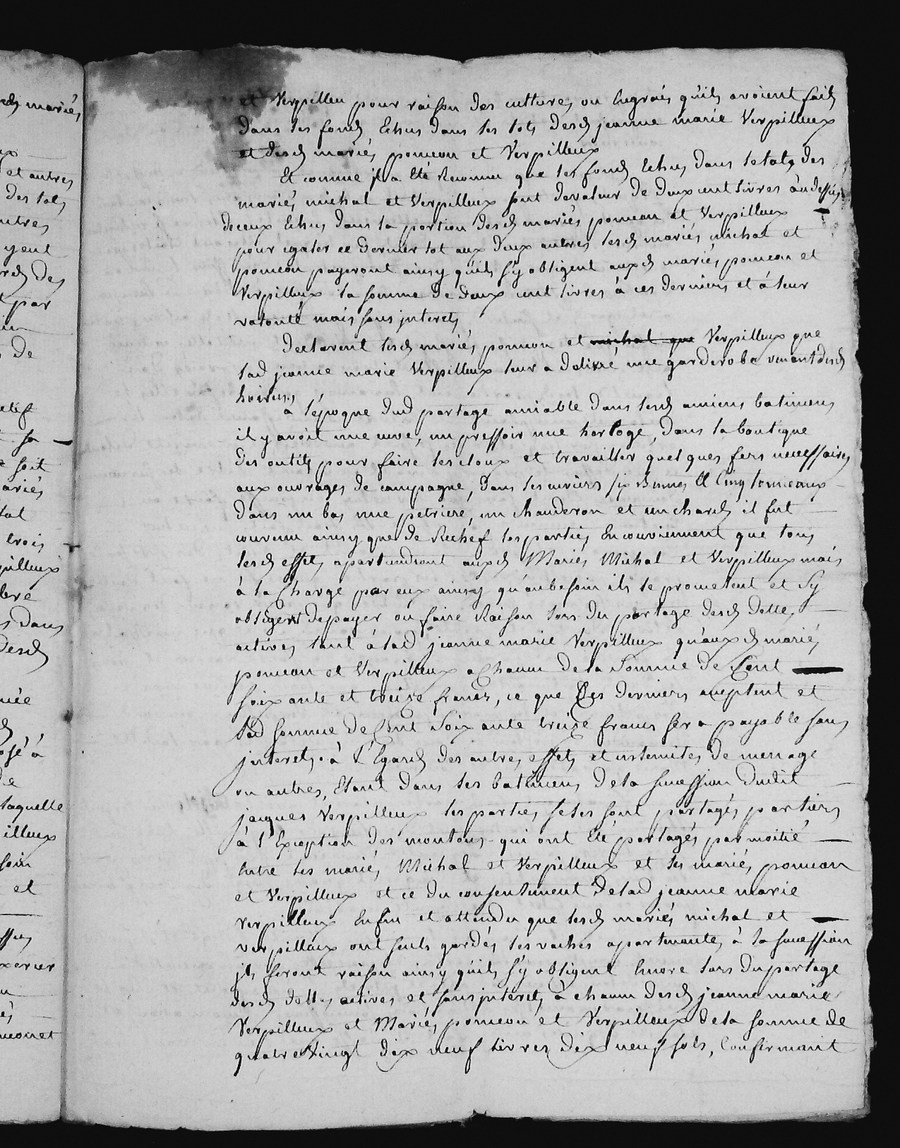 et Verpilleu pour raison des cultures ou engrais qu'ils avoient fait
dans les fonds Echus dans les lots desd jeanne marie Verpilleux
et desd mariés poncon et Verpilleux
Et comme il a Eté Reconnu que les fonds Echus dans le lot des
mariés michal et Verpilleux sont de valeur de deux cent livres audessus
de ceux Echus dans la portion desd mariés poncon et Verpilleux
pour egaler ce dernier lot aux deux autres lesd mariés michal et
poncon payeront ainsy qu'ils s'y obligent auxd mariés poncon et
Verpilleux la somme de deux cent livres à ces derniers et à leur
volonté mais sans interets
Declarent lesd mariés poncon et michal que Verpilleux que
lad jeanne marie Verpilleux leur a delivré une garderobe venant desd
hoiries
a l'époque dud partage amiable dans lesd anciens batimens
il y avoit une cuve, un pressoir une horloge, Dans la boutique
des outils pour faire les cloux et travailler quelques fers necessaires
aux ouvrages de campagne, Dans les cuviers six Bennes et Cinq tonneaux
dans un bas une petriere, un chauderon et un chard il fut
convenu ainsy que de Rechef les parties En conviennent que tous
lesd effets apartiendront auxd Mariés Michal et Verpilleux mais
à la Charge par eux ainsy qu'au besoin ils le prometent et S'y
obligent de payer ou faire Raison lors du partage desd dettes
actives tant à lad jeanne marie Verpilleux qu'auxd mariés
poncon et Verpilleux a Chacun de la Somme de Cent
soixante et treize francs, ce que Ces derniers acceptent et
lad somme de Cent Soixante treize francs sera payable sans
interets. à l'Egard des autres effets et ustensiles de menage
ou autres, Etant dans les batimens de la succession dudit
jacques Verpilleux les parties se les sont partagés par tiers
à l'Exception des moutons qui ont Eté partagés par moitié
Entre les mariés Michal et Verpilleux et les mariés poncon
et Verpilleux et ce du consentement de lad jeanne marie
verpilleux Enfin et attendu que lesd mariés michal et
verpilleux ont seuls gardés les vaches apartenantes à la succession
ils feront raison ainsy qu'ils s'y obligent Encore lors du partage
desd dettes actives et sans interets à chacun desd jeanne marie
Verpilleux et Mariés poncon et Verpilleux de la somme de
quatre Vingt dix neuf livres dix neuf sols, Confirmant